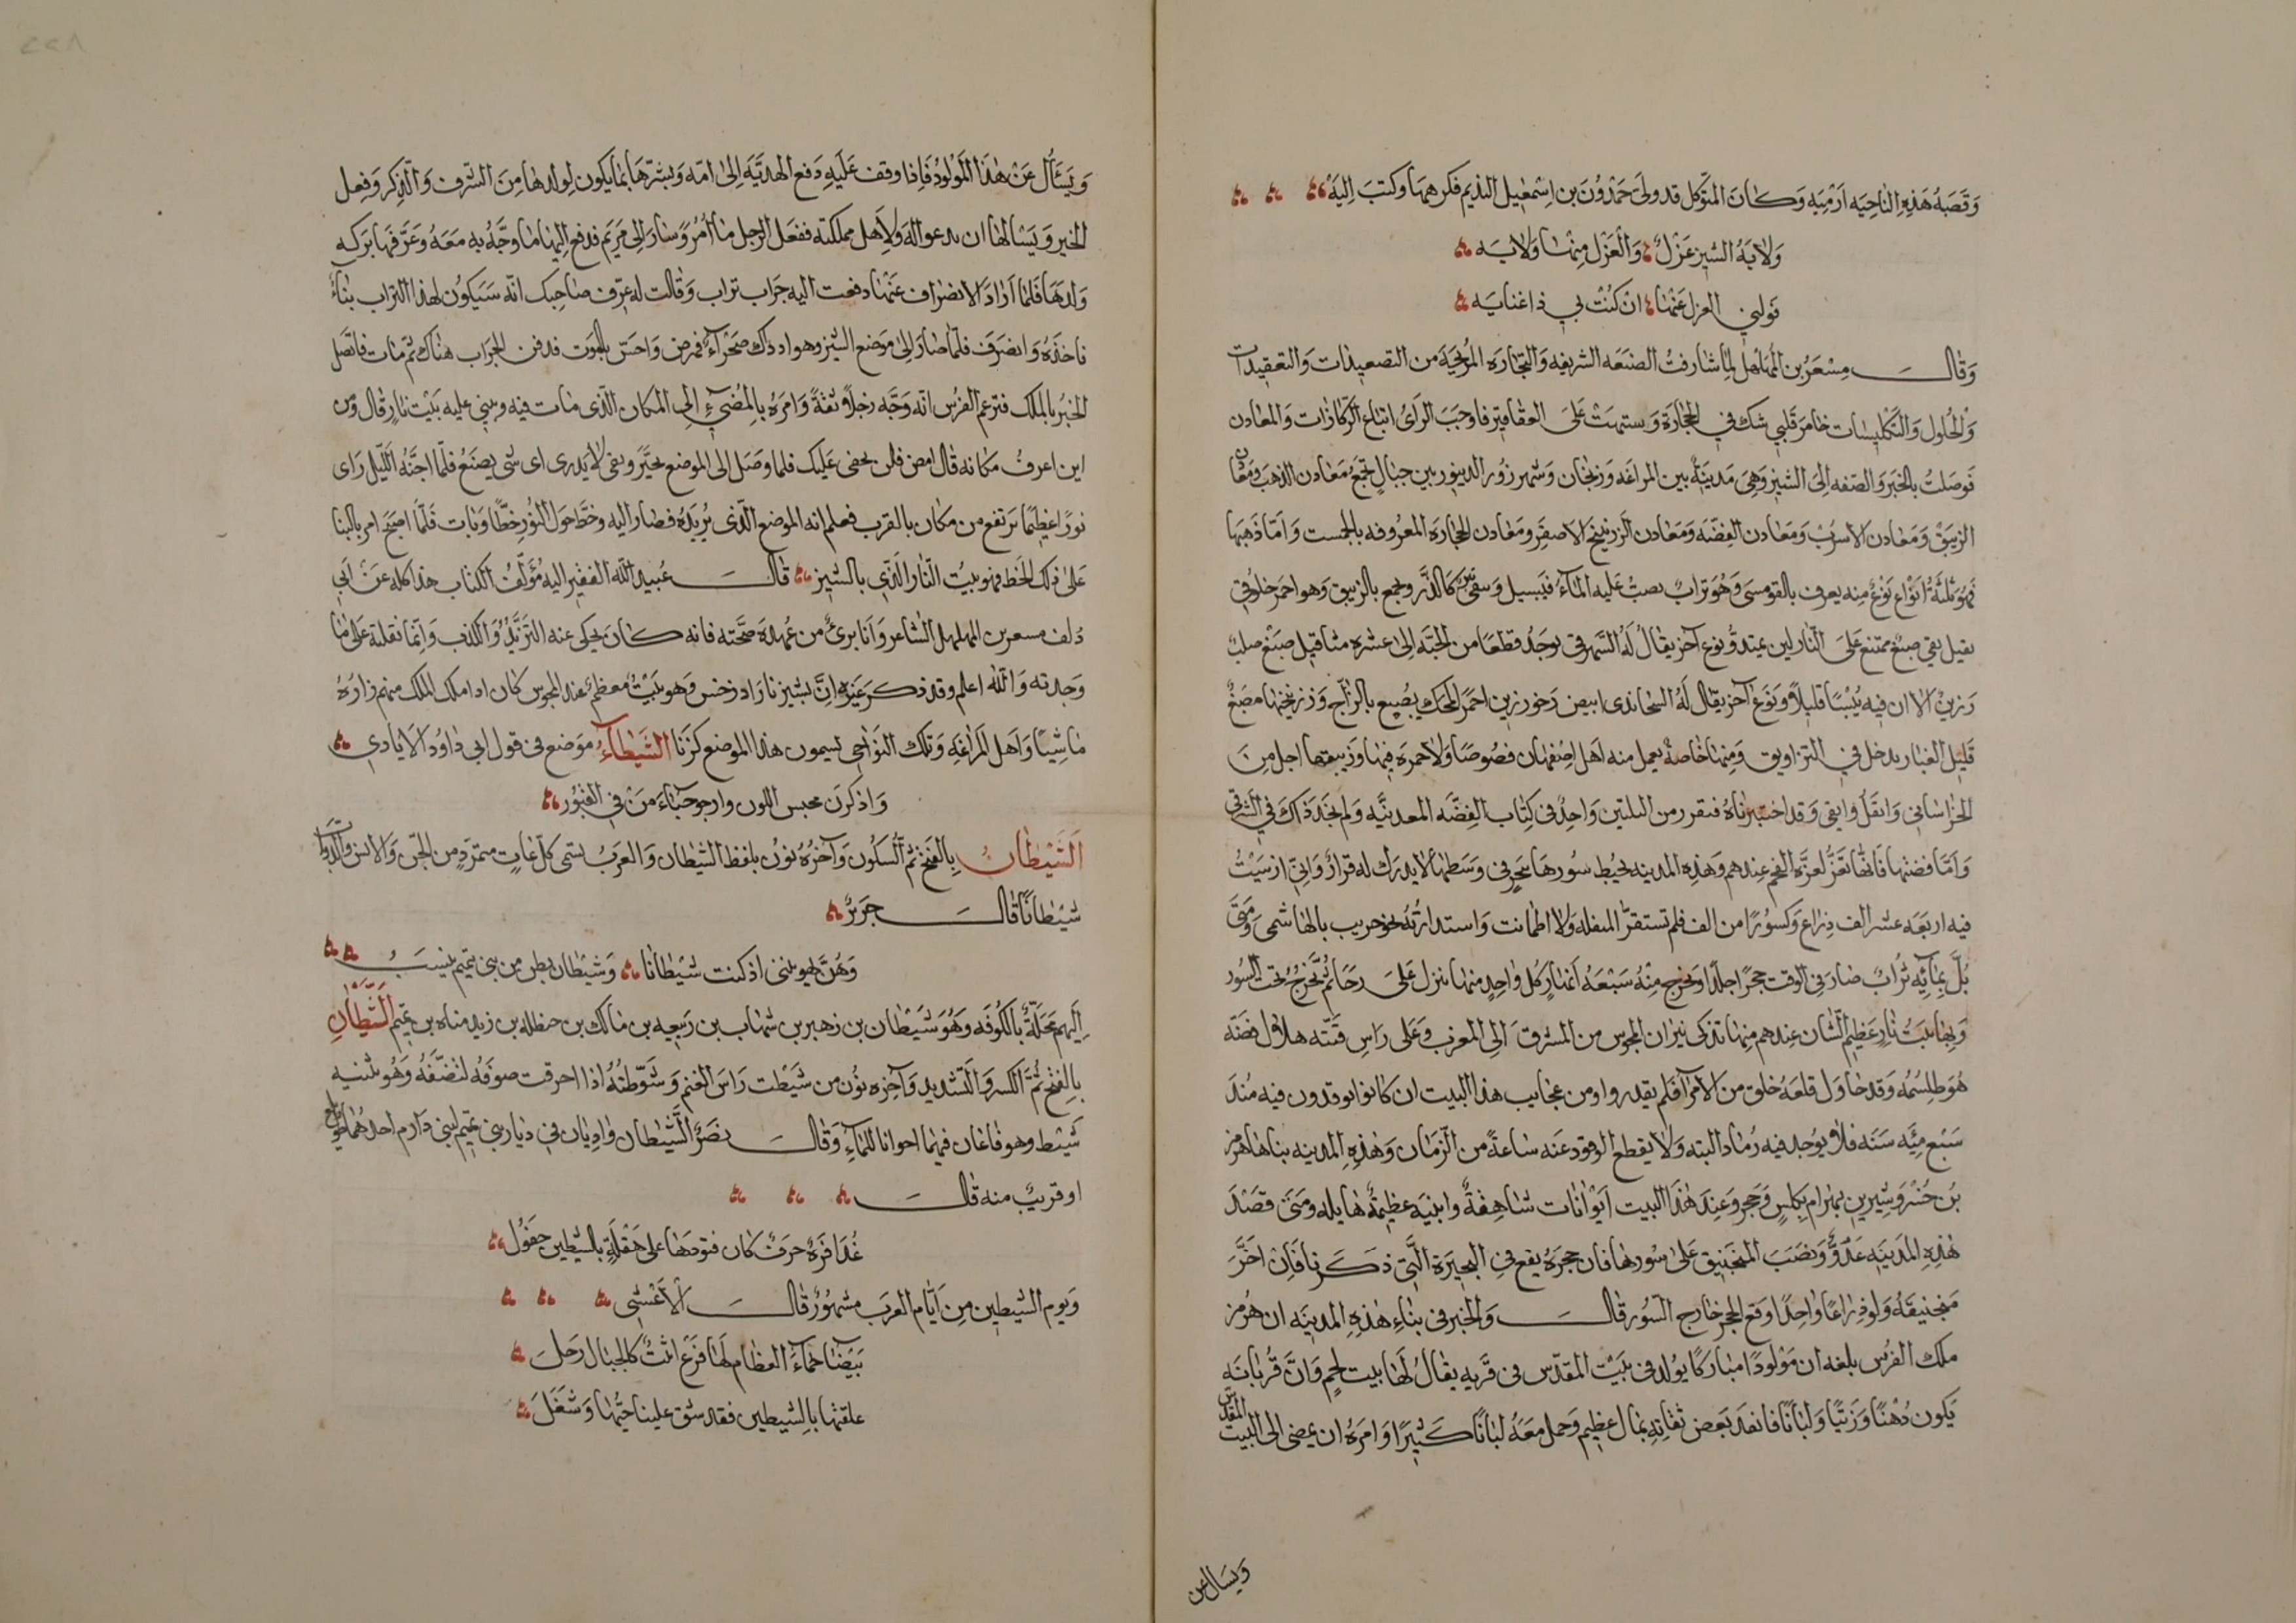 وَقَصَبَةُ هَذِهِ النَّاحِيَه اُرْمِيَه وَكَانَ المتَوكل قد ولى حَمْدُوُنَ بن اِسْمعٰيل النديم فكرهها وكتبَ اِليَهُ
وَلايَةُ الشيز عَزْلٌ وَالْعَزْل مِنْهٰا وَلايَه
فَولني العزل عَنْهٰا انْ كُنْتَ بي ذا عنايَه
وَقٰالَ مِسْعَرُ بن المُهَلْهل لِمٰا شارفتُ الصنعَه الشريفه وَالتجٰارَه المُربحَه من التصعيدٰات وَالتعقيدات
وْالحُلول وَالتَكْليسٰات خامَرَ قَلبي شك في الحِجٰارَة وَ علىَ العقٰاقير فاوجَبَ الرَاىُ اتباع الرّكازٰات وَالمعٰادن
فوصَلتُ بالخبَر وَالصّفه اِلىَ الشيز وَهِىَ مَدينَةٌ بين المراغَه وَزنجٰان وَشهرزُور الدينور بين جبٰالٍ تجمَعُ مَعٰادن الذهَب وَمعٰادن
الزيبَقْ وَمَعٰادن الاسرُبْ وَمَعٰادن الفضّه وَمَعٰادن الزرنيخ الاصفر وَمَعٰادن الحجٰارَه المعرُوفه بالجمست وَامّا ذَهَبهٰا
فهُوَ ثلثَةُ انْوٰاع نَوْعٌ منه يعرف بالقومسى وَهُوَ ترابٌ يصبّ عليه المٰاءُ فيَسيل وَيبقى تبر كالذَّر ويجمع بالزيبق وَهو احمَر خلوقى
ثقيل نقى صبغ ممتنع علىَ النّار لين يمتد وَنوع آخر يقٰالُ لَهُ الشهرقى يوجَدُ قطعًا من الحبَّه اِلىٰ عشره مثاقيل صَبغ صلب
رَزينْ الا ان فيه يُبْسًا قليلاً وَنَوع آخر يقٰال لَهُ السحاندى ابيض رخو رزين احمر المحك يصبغ بالزّاج وَزرنيخها مصَبغ
قَليل الغبار يدخل في التزاويق وَمِنهٰا خٰاصَّةٌ يعمل منه اهَل اصْفهٰان فصُوصًا وَلا حمره فيهٰا وَزيبقهٰا اجل مِنَ
الخراسٰاني وَاثقَل وانقى وَقد اختبرنٰاهُ فتقرر من الثلثين وَاحِدٌ في كِتٰاب الفِضّه المعدنيَّه وَلم نجدَ ذَاكَ في الشرقى
وَامّا فضتهٰا فانّهٰا تعَزُّ لعزَّة الفحم عندهم وَهٰذِه المدينه يحُيط سُورهٰا ببحير في وَسَطهٰا لا يدرك له قرارٌ وَانِيّ ارسَيتُ
فيه اربَعَه عشر الف ذِرٰاع وَكسُورًا من الف فلم تستقر المثقله وَلا اطمانت وَاستدارتهُ نحو جريب بالهٰاشمى وَمَتىَ
بُلَّ بمٰائِه ترُابٌ صٰارَ فى الوقت حجرًا صلدًا وَيخرج مِنْهُ سَبْعَهُ انهٰار كُل وٰاحِدٍ منهٰا ينزل عَلىَ رحًا ثُمَّ يخَرُجُ تحتَ السُور
وَبِهٰا بَيتُ نٰارٍ عَظيم الشّان عندهم مِنهٰا تذكى نيرٰان المجوس من المشرق اِلى المغرب وَعَلى رَاسِ قبّته هلالُ فضّه
هُوَ طلسُمُه وَقد حٰاوَل قلعَهُ خلق من الامرٰآء فلم يقدروا ومن عجايب هذا البيت ان كانوا يوقدون فيه منُذ
سَبْع مِئَه سَنَه فلا يوُجد فيه رُمٰاد البته وَلا ينقطع الوقود عَنه سٰاعةً من الزّمٰان وَهٰذِه المدينه بناهٰا هرمز
بنْ خُسْرَوشير بن بهرٰام بكلسٍ وَحجر وَعندَ هٰذَا البيت ايْوٰانٰات شٰاهِقةٌ وابنيَه عظيمَةٌ هٰايله وَمَتى قصَدَ
هٰذِه المَدينَه عَدُوٌّ وَنصَبَ المنجنيق عَلىٰ سُورهٰا فان حجرَهُ يقع في البحيرَة الَّتى ذكَرنا فَاِنْ اخَّرَ
مَنجنيقه وَلو ذِراعًا وٰاحِدًا وَقَع الحجر خارج السُّور قٰالَ وَالخبر فى بنٰاءِ هٰذِهِ المدينَه ان هُرمز
ملك الفرُس بلغه ان مَوْلودًا مبٰارَكًا يوُلد فى بَيْت المقدّس فى قريه يقٰالُ لَهٰا بيت لحمٍ وَانّ قُربٰانَه
يَكون دُهْنًا وَزيتًا وَلبٰانًا فانفذ بَعض ثقٰاتِه بمٰال عظيم وَحمل معَهُ لبٰانًا كَثيرًا وَامرَهُ ان يمضى الى البيت المقدس
وَيسَال عن
وَيَسَأَل عَنْ هٰذَا المَوْلوُدْ فَاِذا وقف عَلَيهِ دَفع الهديَّه اِلىٰ امّه وَبشرَّهَا بمٰا يكون لولدهٰا مِنَ الشرف وَالذِكر وَفعِل
الخير وَيَسْالهٰا ان يدعو الهَ وَلاِهل مملكته ففعَل الرجل مٰا أُمر وَسٰارَ اِلى مَريَم فدفع اِليْهٰا مٰا وجَّهُ به مَعَهُ وَعَرَّفهٰا بَركه
وَلدهَا فلمّا ارَادَ الانصرٰاف عَنْهٰا دفعت اليه جَرٰاب تراب وَقٰالت له عرّف صٰاحبك انّه سَيَكوُن لهذا التراب بنٰاءٌ
فاخذَهُ وَانصَرَف فلمّا صٰارَ اِلىٰ مَوضع الشيز وهو اذ ذٰك صَحْرآءُ فمرض وَاحسّ بالموت فدفن الجرَاب هنٰاك ثمّ مٰات فاتّصل
الخبرُ بالملك فتزعم الفرُس انّه وَجّه رَجلاً ثقةً وَامرَهُ بالمُضيّ اِلى المكان الّذى مٰات فيه ويبني عليه بَيْت نٰارٍ قٰال وَمن
اين اعرفُ مكانه قٰال امض فلن يخفى عَليك فلمّا وصَل الى الموضع تحيَّر وبقى لا يدرى اى شى يصنَعُ فلمّا اجنَّهُ اللّيل رَاى
نورًا عظيمًا يَرتفع من مكان بالقرب فعلم انه الموضع الّذى يُريَدُه فصٰار اليه وخطَّ حَول النُّور خطًّا وَبٰات فَلمّا اصبَحَ امر بالبنا
عَلىٰ ذلك الخط فهو بيتُ النّار الَّذي بالشيز قالَ عُبيد اللّه الفقير اليه مُؤَلفُ الكتٰاب هذا كله عَن اَبي
دُلف مسعر بن المهلهل الشاعر وَانا برئ من عُهدَة صحّته فانه كانَ يحكى عنه التزَيُّدُ وَالكذب وَانّما نقلته عَلىٰ مٰا
وَجدته وَاللّه اعلم وقد ذكرَ غَيرُه اِنَّ بشيز نار اذرخس وَهو بَيْتٌ معظم عند المجوس كٰان اذا ملك الملك منهم زارَهُ
مٰاشيًا وَاهَل المَرٰاغه وَتلك النوَاحى يسمون هذا الموضع كزَنا الشَّيْطٰآءُ موَضع فى قول ابي دٰاوُدَ الايٰادي
وَاذكرَن محبس اللبون وارجو حيٰاةَ مَنْ في القبُور
الَشَّيْطٰانُ بِالفَتحِ ثُمَّ السّكوُن وَآخرُهُ نوُنٌ بلفظ الشيطٰان وَالعرَبُ تسَمى كلّ عٰاتٍ متمردٍ من الجنّ وَالانس والدّوابّ
شَيْطٰانًا قٰالَ جَريرٌ
وَهُنَّ يهوينني اذ كنت شَيْطٰانا وَشيْطٰان بطن من بني تميم ينسَبُ
اِليهم محَلّةٌ بالكُوفَه وَهُوَ شَيَطٰان بن زهير بن شهٰاب بن رَبيعه بن مٰالك بن حنظله بن زيد منٰاه بن تميم الَشَّيِّطٰانِ
بالِفَتحِ ثُمَّ الكسر وَالتّشديد وَآخِره نوُن من شيَّطت رَاسَ الغنم وَشوّطتُهُ اذا احرقت صوفَهُ لتنضّفَهُ وَهُو تثنيه
شَيّط وهو قاعان فيهٰا احواٰنا للمٰاءِ وَقالَ نصَرٌ الشَّيِطان وٰاديٰان في ديٰار بني تميم لبني دٰارم احدهُمٰا طويلع
او قريبٌ منه قٰالَ
عُذٰافرَهٌ حرَفٌ كٰان قتودهٰا على هَقْلَةٍ بالشيّطين جفَوُل
وَيوم الشيطين مِنْ ايّٰام العرَب مشهوُرٌ قٰالَ الْاَعْشي
بَيَضٰا جَمٰاءَ العظٰام لَهٰا فَرْعٌ اثيثٌ كالحبٰال رَجلَ
علقتهٰا بالِشيطين فقد شق علينا حبُّهٰا وَشَغَلَ